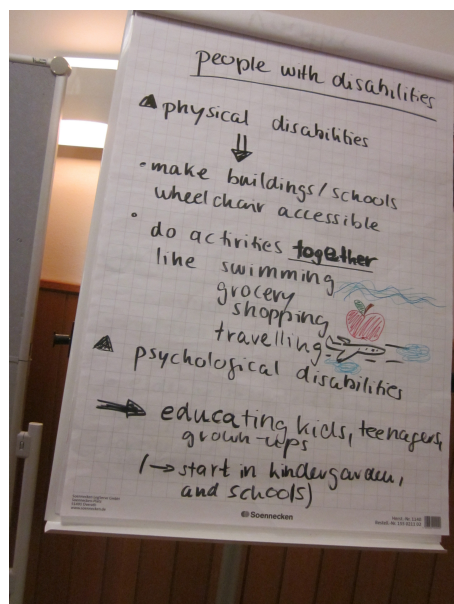 people with disabilities
physical disabilities
⇓
• make buildings/schools
wheelchair accessible
• do activities together
like swimming
grocery
shopping
travelling
psychological disabilities
→ educating kids, teenagers,
grown-ups
(→ start in kindergarden,
and schools)
Soennecken